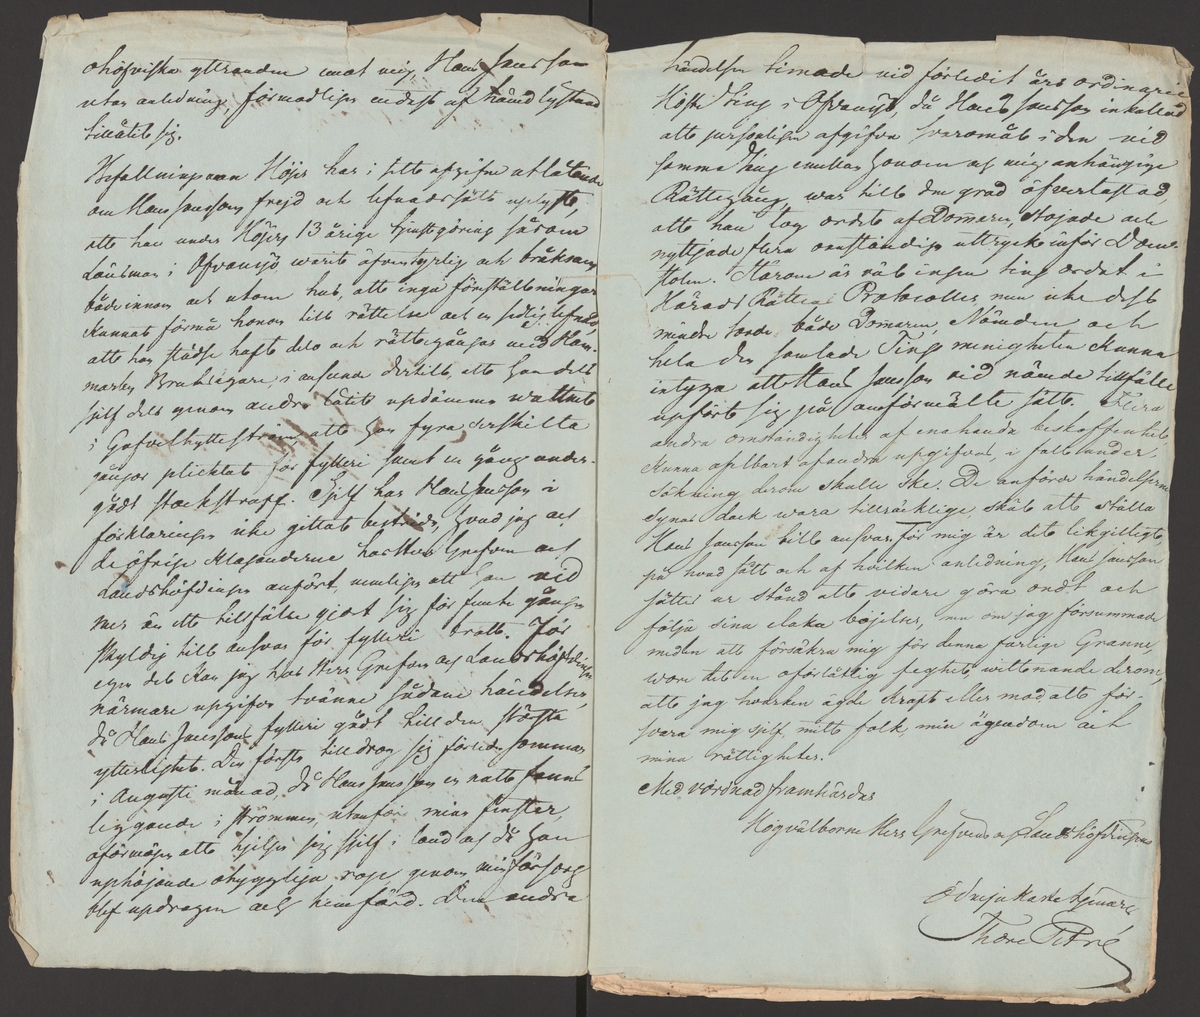 ohöfviska yttranden emot mig, Hans Jansson
utan anledning, förmodligen endast af hämdlystnad
tillåtit sig.
Befallningsman Höjer har i sitt afgifne utlåtande
om Hans Janssons frejd och lefnadssätt uplyst,
att han under Höjers 13 årige tjenstgöring såsom
Länsman i Ofvansjö, warit äfventyrlig och bråksam
både innom och utom hus, att inga föreställningar
kunnat förmå honom till rättelse och en sedlig lefnad,
att han städse haft delo och rättegångar med Ham-
marby Bruksägare, i anseende dertill, att han dels
sjelf dels genom andra låtit updämma wattnet
i Gafvelhytteström, att han fyra serskilta
gångor plicktat för fylleri samt en gång under-
gådt stockstraff. Sjelf har Hans Jansson i
förklaringen icke gittat bestrida, hvad jag och
de öfrige Klaganderne hos Herr Grefven och
Landshöfdingen anfört, nemligen att han vid
mer än ett tillfälle gjort sig för femte gången
skyldig till ansvar för fylleri brott. För
egen del kan jag hos Herr Grefven och Landshöfdingen
närmare upgifva tvänne sådane händelser,
då Hans Janssons fylleri gådt till den största
ytterlighet. Den första tilldrog sig förledne sommar
i Augusti månad, då Hans Jansson en natt fanns
liggande i strömmen utanför mina fenster,
oförmögen att hjelpa sig sjelf i land och då han
uphöjande ohyggliga rop genom min försorg
blef updragen och hemförd. Den andra
händelsen timade vid förledit års ordinarie
Höste Ting i Ofvansjö, då Hans Jansson inkallad
att personligen afgifva svaromål i den vid
samma Ting emellan honom och mig anhängige
Rättegång, war till den grad öfverlastad,
att han tog ordet af Domaren, stojade och
nyttjade flera oanständiga uttryck inför Dom-
stolen. Härom är väl ingen ting ordat i
Härads Rättens Protocoller, men icke dess
mindre torde både Domaren, Nämden och
hela den samlade Tings menigheten kunna
intyga att Hans Jansson vid nämde tillfälle
upfört sig på anförmälte sätt. Flera
andra omständigheter af enahanda beskaffenhet
kunna ofelbart af andra upgifvas, i fall under-
sökning derom skulle ske. De anförde händelserne
synas dock wara tillräcklige skäl att ställa
Hans Jansson till ansvar; för mig är det likgilltigt,
på hvad sätt och af hvilken anledning, Hans Jansson
sättes ur stånd att vidare göra ondt och
följa sina elaka böjelser, men om jag försummade
medlen att försäkra mig för denna farlige Granne,
wore det en oförlåtlig feghet, wittnande derom,
att jag hvarken ägde kraft eller mod att för-
svara mig sjelf, mitt folk, min ägendom och
mina rättigheter.
Med vördnad framhärdar
Högvälborne Herr Grefvens och Landshöfdingens
ödmjukaste tjenare
Thore Petré